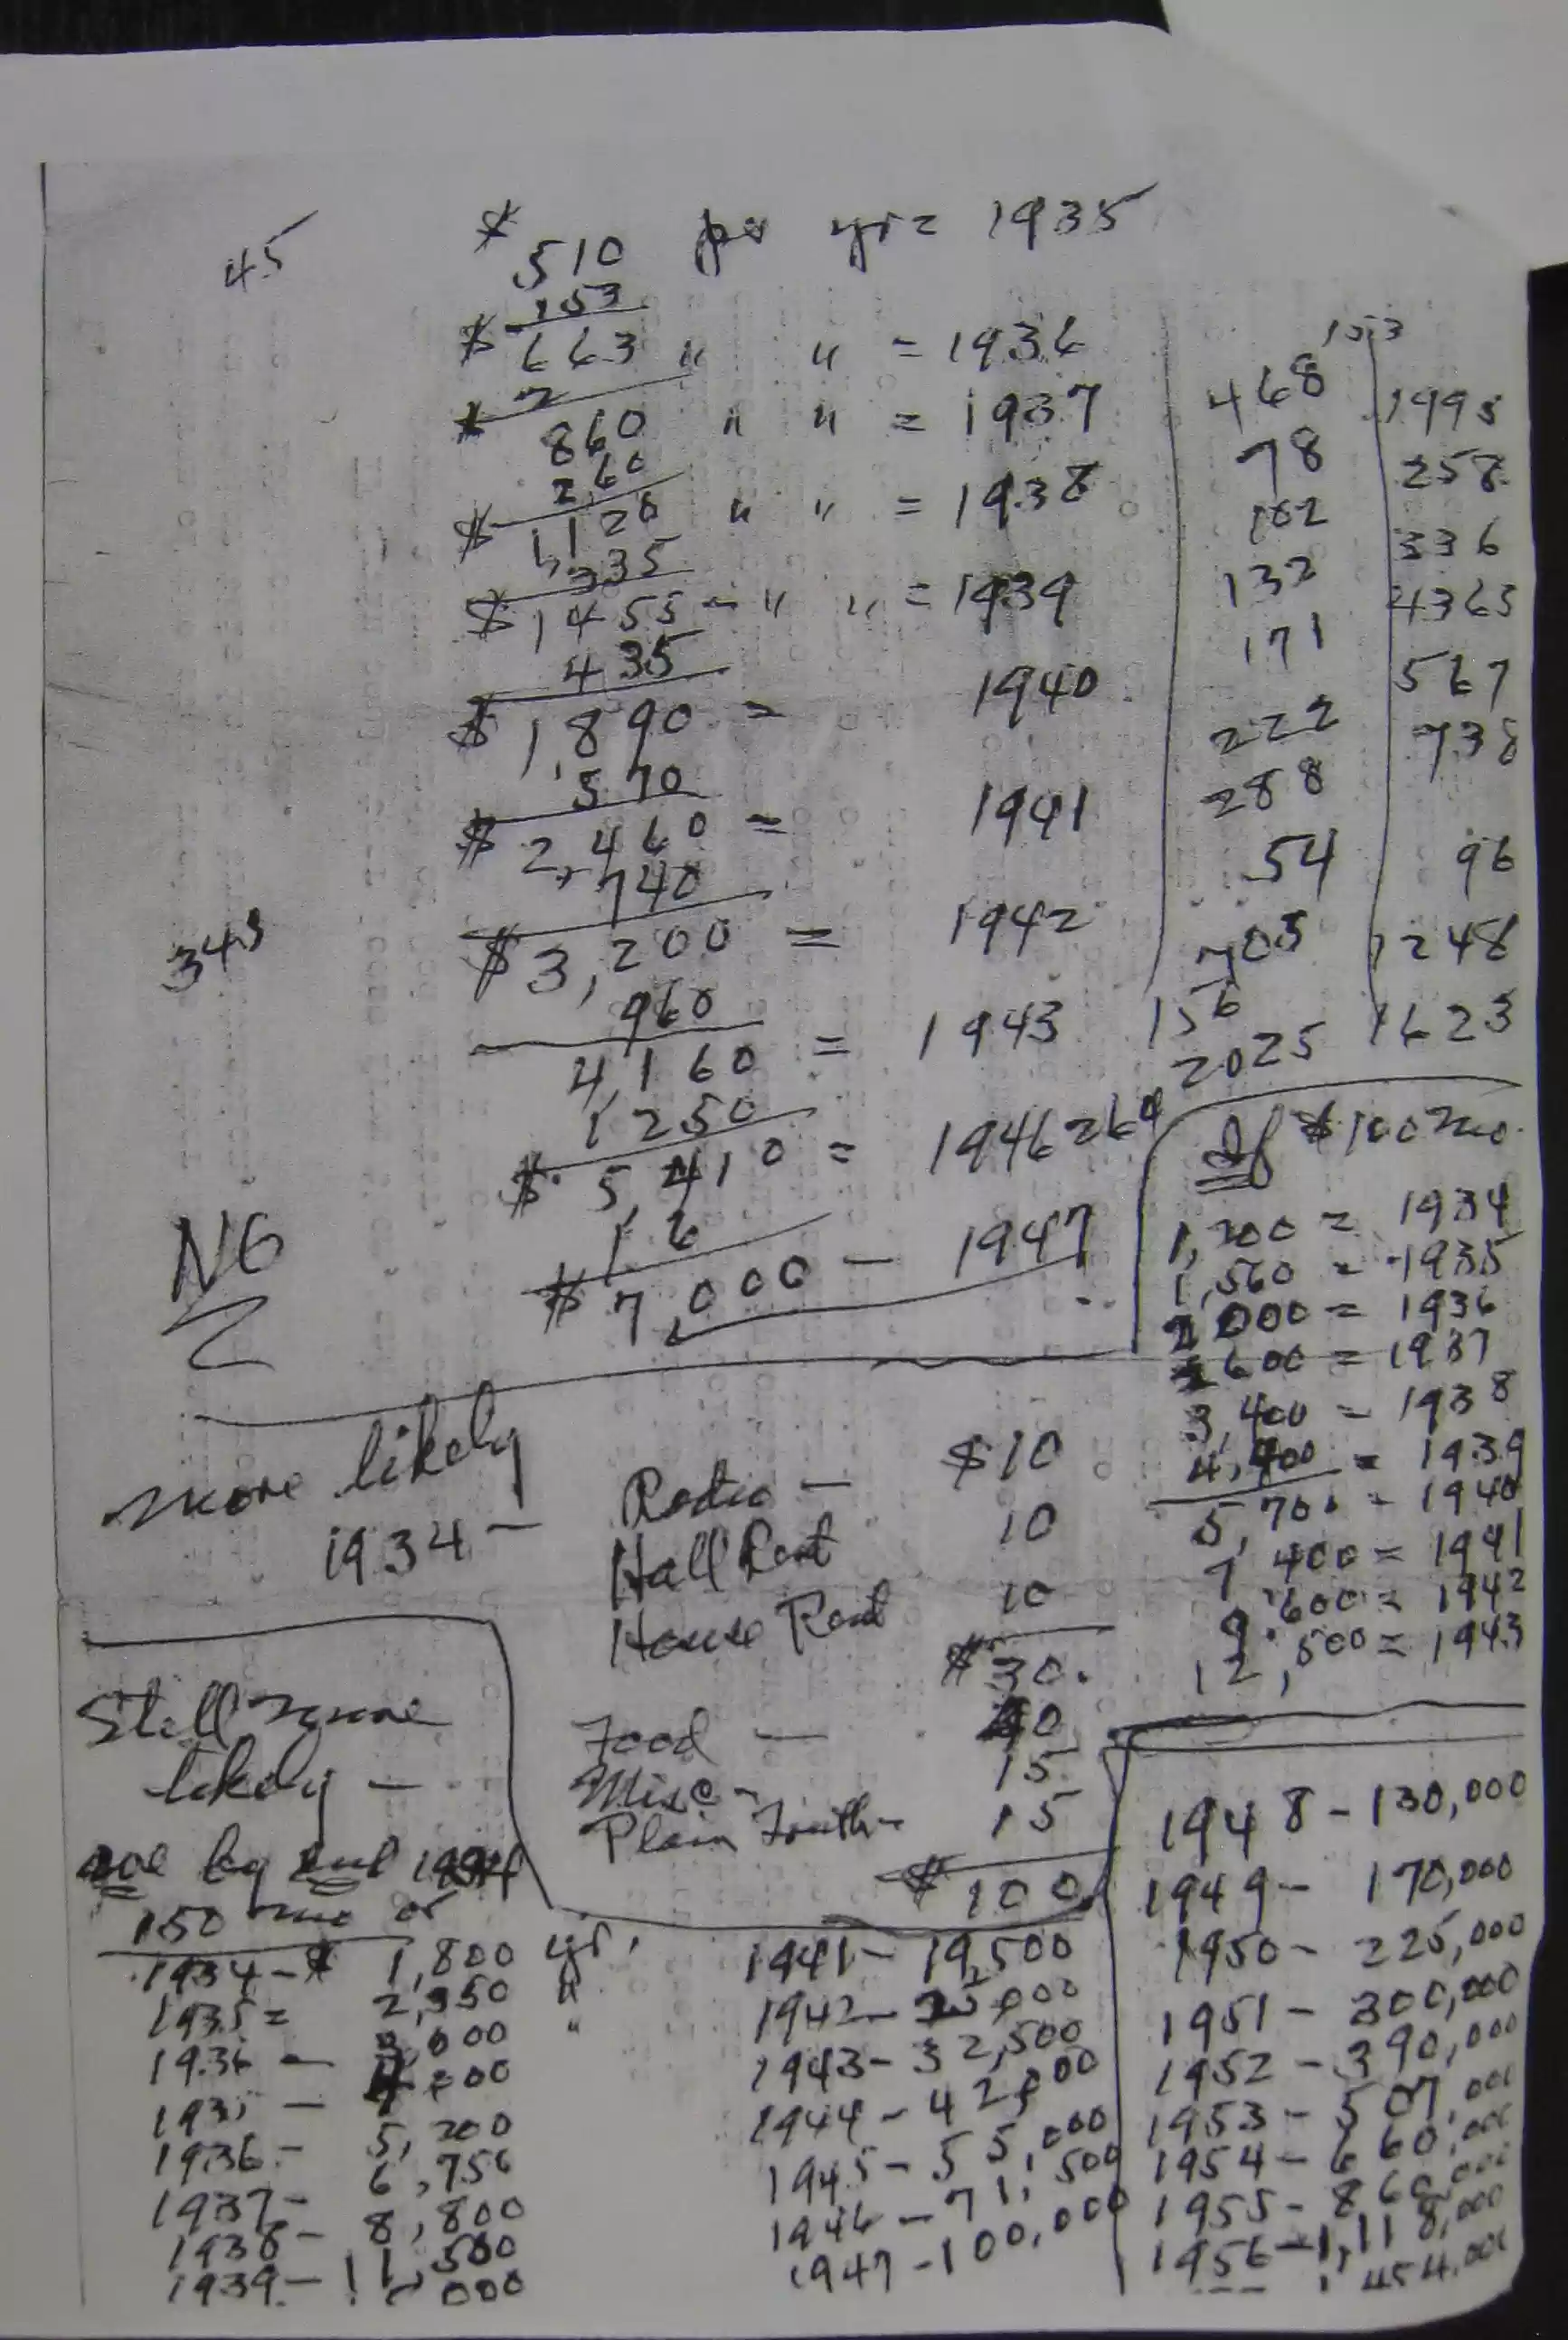 45
$ 510 per yr = 1935
153
$ 663 " " = 1936
$ 2
860 " " = 1937
260
$ 1,120 " " = 1938
335
$ 1,455 - " " = 1939
435
$ 1,890 = 1940
570
$ 2,460 = 1941
740
345
$ 3,200 = 1942
960
4,160 = 1943
1250
$ 5,410 = 1946
1 6
$ 7,000 - 1947
NG
153
468 1995
78 258
102 336
132 4365
171 567
222 738
288
54 96
703 1248
156
2025 1623
260
If $100 mo.
1,200 = 1934
1,560 = 1935
2,000 = 1936
2600 = 1937
3,400 = 1938
4,400 = 1939
5,700 = 1940
7 400 = 1941
9.600 = 1942
12,500 = 1943
more likely
1934 -
Radio - $10
Hall Rent 10
House Rent 10
$30.
Food - 40
Misc - 15
Plain Truth - 15
$100
Still more
likely -
by end 1934
150 mo or
1934 - $ 1,800 yr.
1935 = 2,350 "
1936 - 3,000 "
1935 - 4,000
1936 - 5,200
1937 - 6,750
1938 - 8,800
1939 - 11,500
000
1941 - 19,500
1942 - 25,000
1943 - 32,500
1944 - 42,000
1945 - 55,000
1946 - 71,500
1947 - 100,000
1948 - 130,000
1949 - 170,000
1950 - 225,000
1951 - 300,000
1952 - 390,000
1953 - 507,000
1954 - 660,000
1955 - 860,000
1956 - 1,118,000
454,000